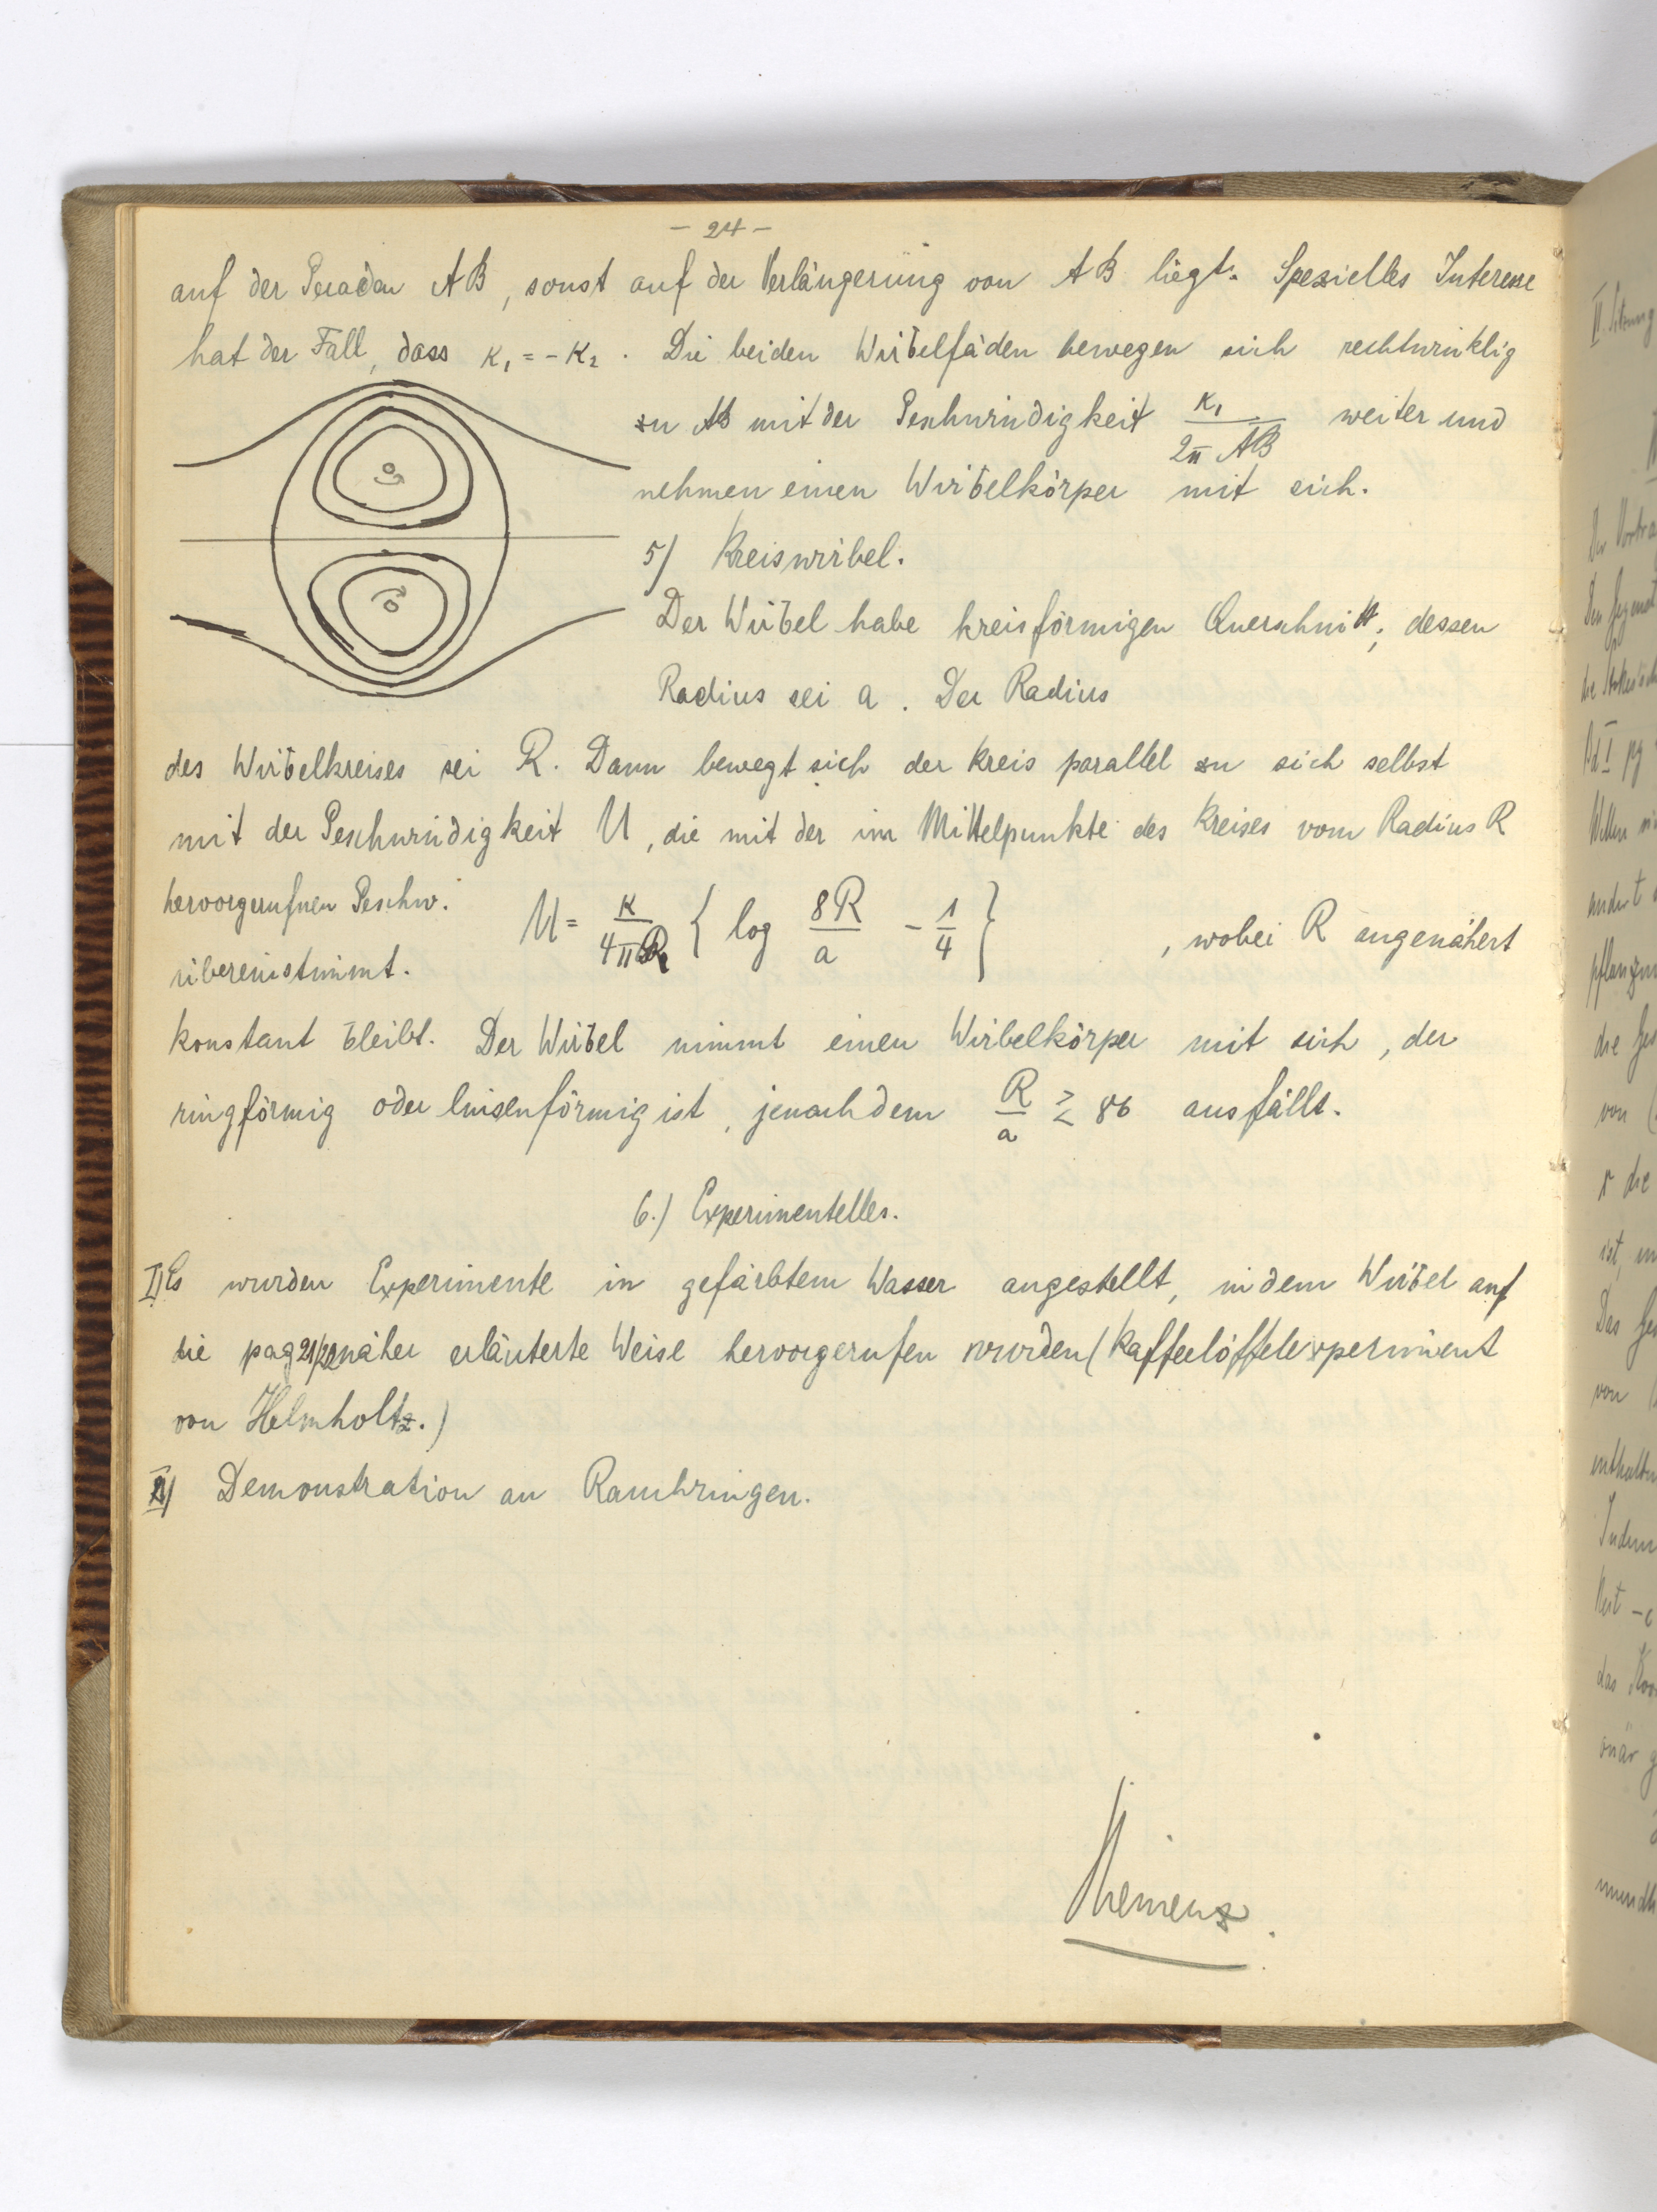 - 24 -
auf der Geraden AB, sonst auf der Verlängerung von AB liegt. Spezielles Interesse
hat der Fall, dass κ₁ = - κ₂. Die beiden Wirbelfäden bewegen sich rechtwinklig
zu AB mit der Geschwindigkeit κ₁ / 2π AB weiter und
nehmen einen Wirbelkörper mit sich.
5) Kreiswirbel.
Der Wirbel habe kreisförmigen Querschnitt; dessen
Radius sei a. Der Radius
des Wirbelkreises sei R. Dann bewegt sich der Kreis parallel zu sich selbst
mit der Geschwindigkeit U, die mit der im Mittelpunkte des Kreises vom Radius R
hervorgerufnen Geschw.
übereinstimmt. U = κ / 4πR { log 8R / a - 1/4 }, wobei R angenähert
konstant bleibt. Der Wirbel nimmt einen Wirbelkörper mit sich, der
ringförmig oder linsenförmig ist, jenachdem R / a ≷ 86 ausfällt.
6.) Experimentelles.
I) Es wurden Experimente in gefärbtem Wasser angestellt, in dem Wirbel auf
die pag 21/22 näher erläuterte Weise hervorgerufen wurden (Kaffeelöffelexperiment
von Helmholtz.)
II) Demonstration an Rauchringen.